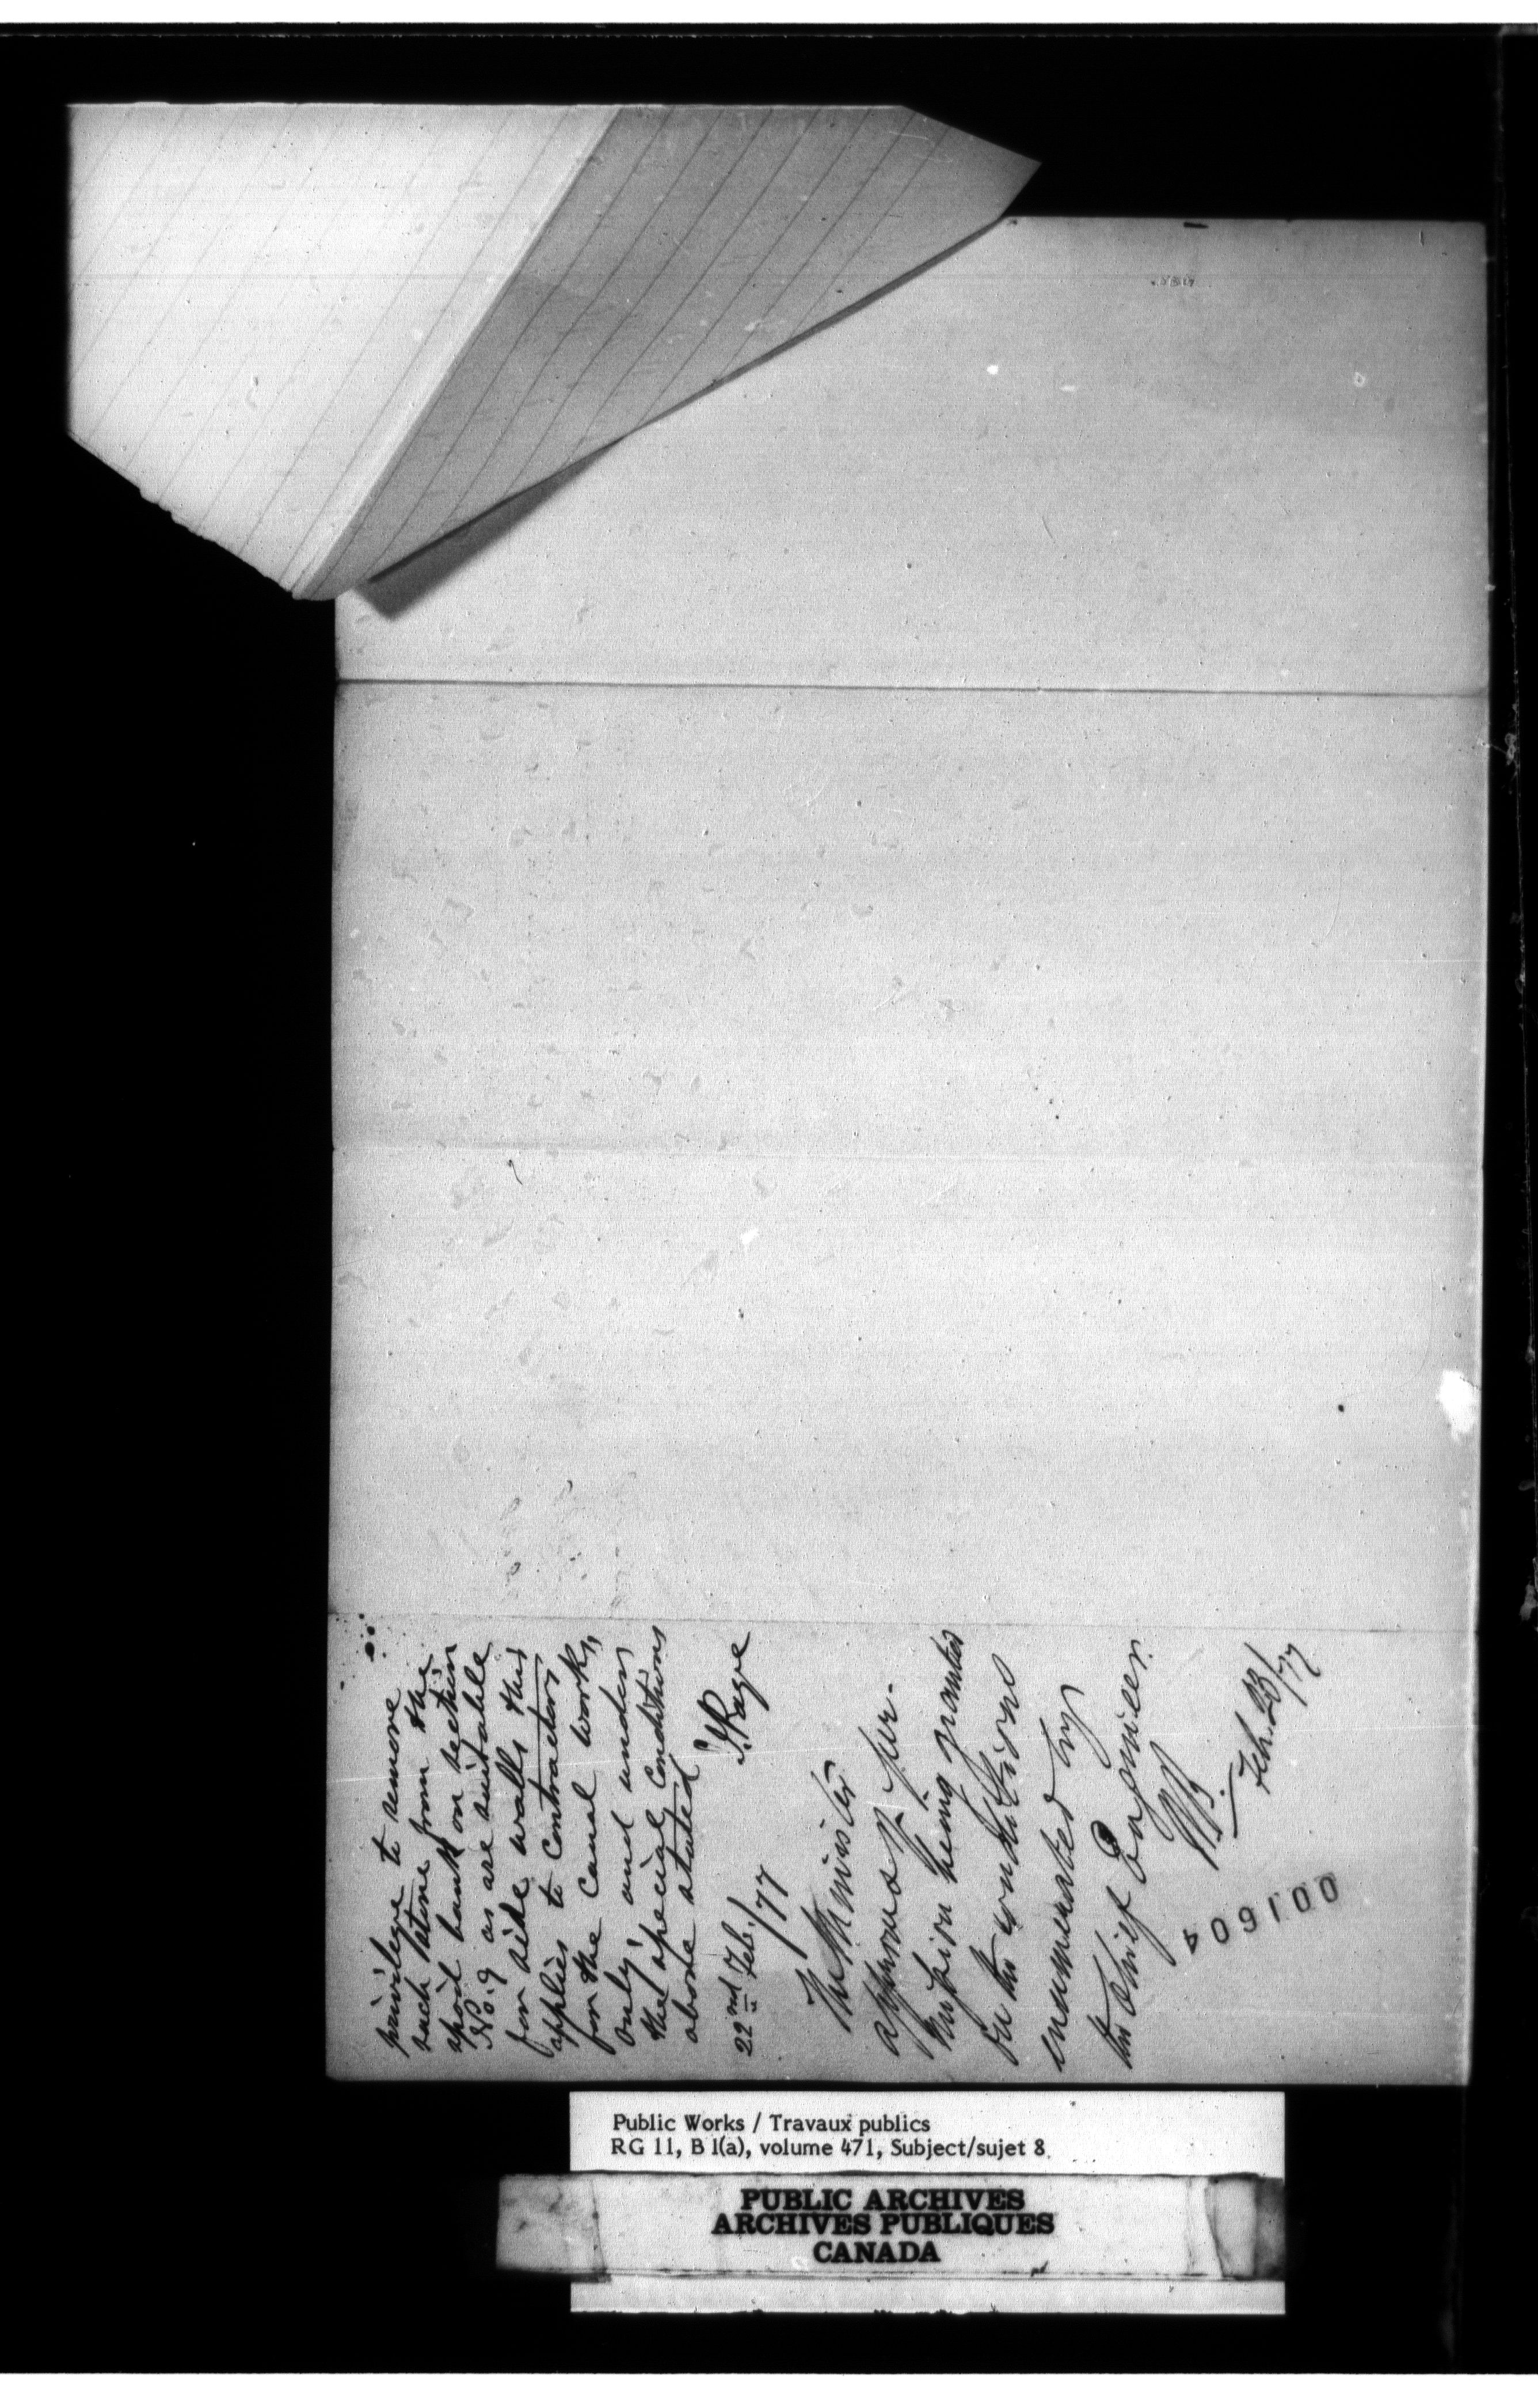 privilege to remove
such stone from the
spoil bank on section
No. 9 as are suitable
for side walls this
applies to contractors
for the canal works,
only, and under
the special conditions
above stated
J. Page
22nd Feb./77
The Minister
approves of per-
mission being granted
on the conditions
enumerated by
the Chief Engineer.
Feb. 23/77
001604
Public Works / Travaux publics
RG 11, B 1(a), volume 471, Subject/sujet 8
PUBLIC ARCHIVES
ARCHIVES PUBLIQUES
CANADA